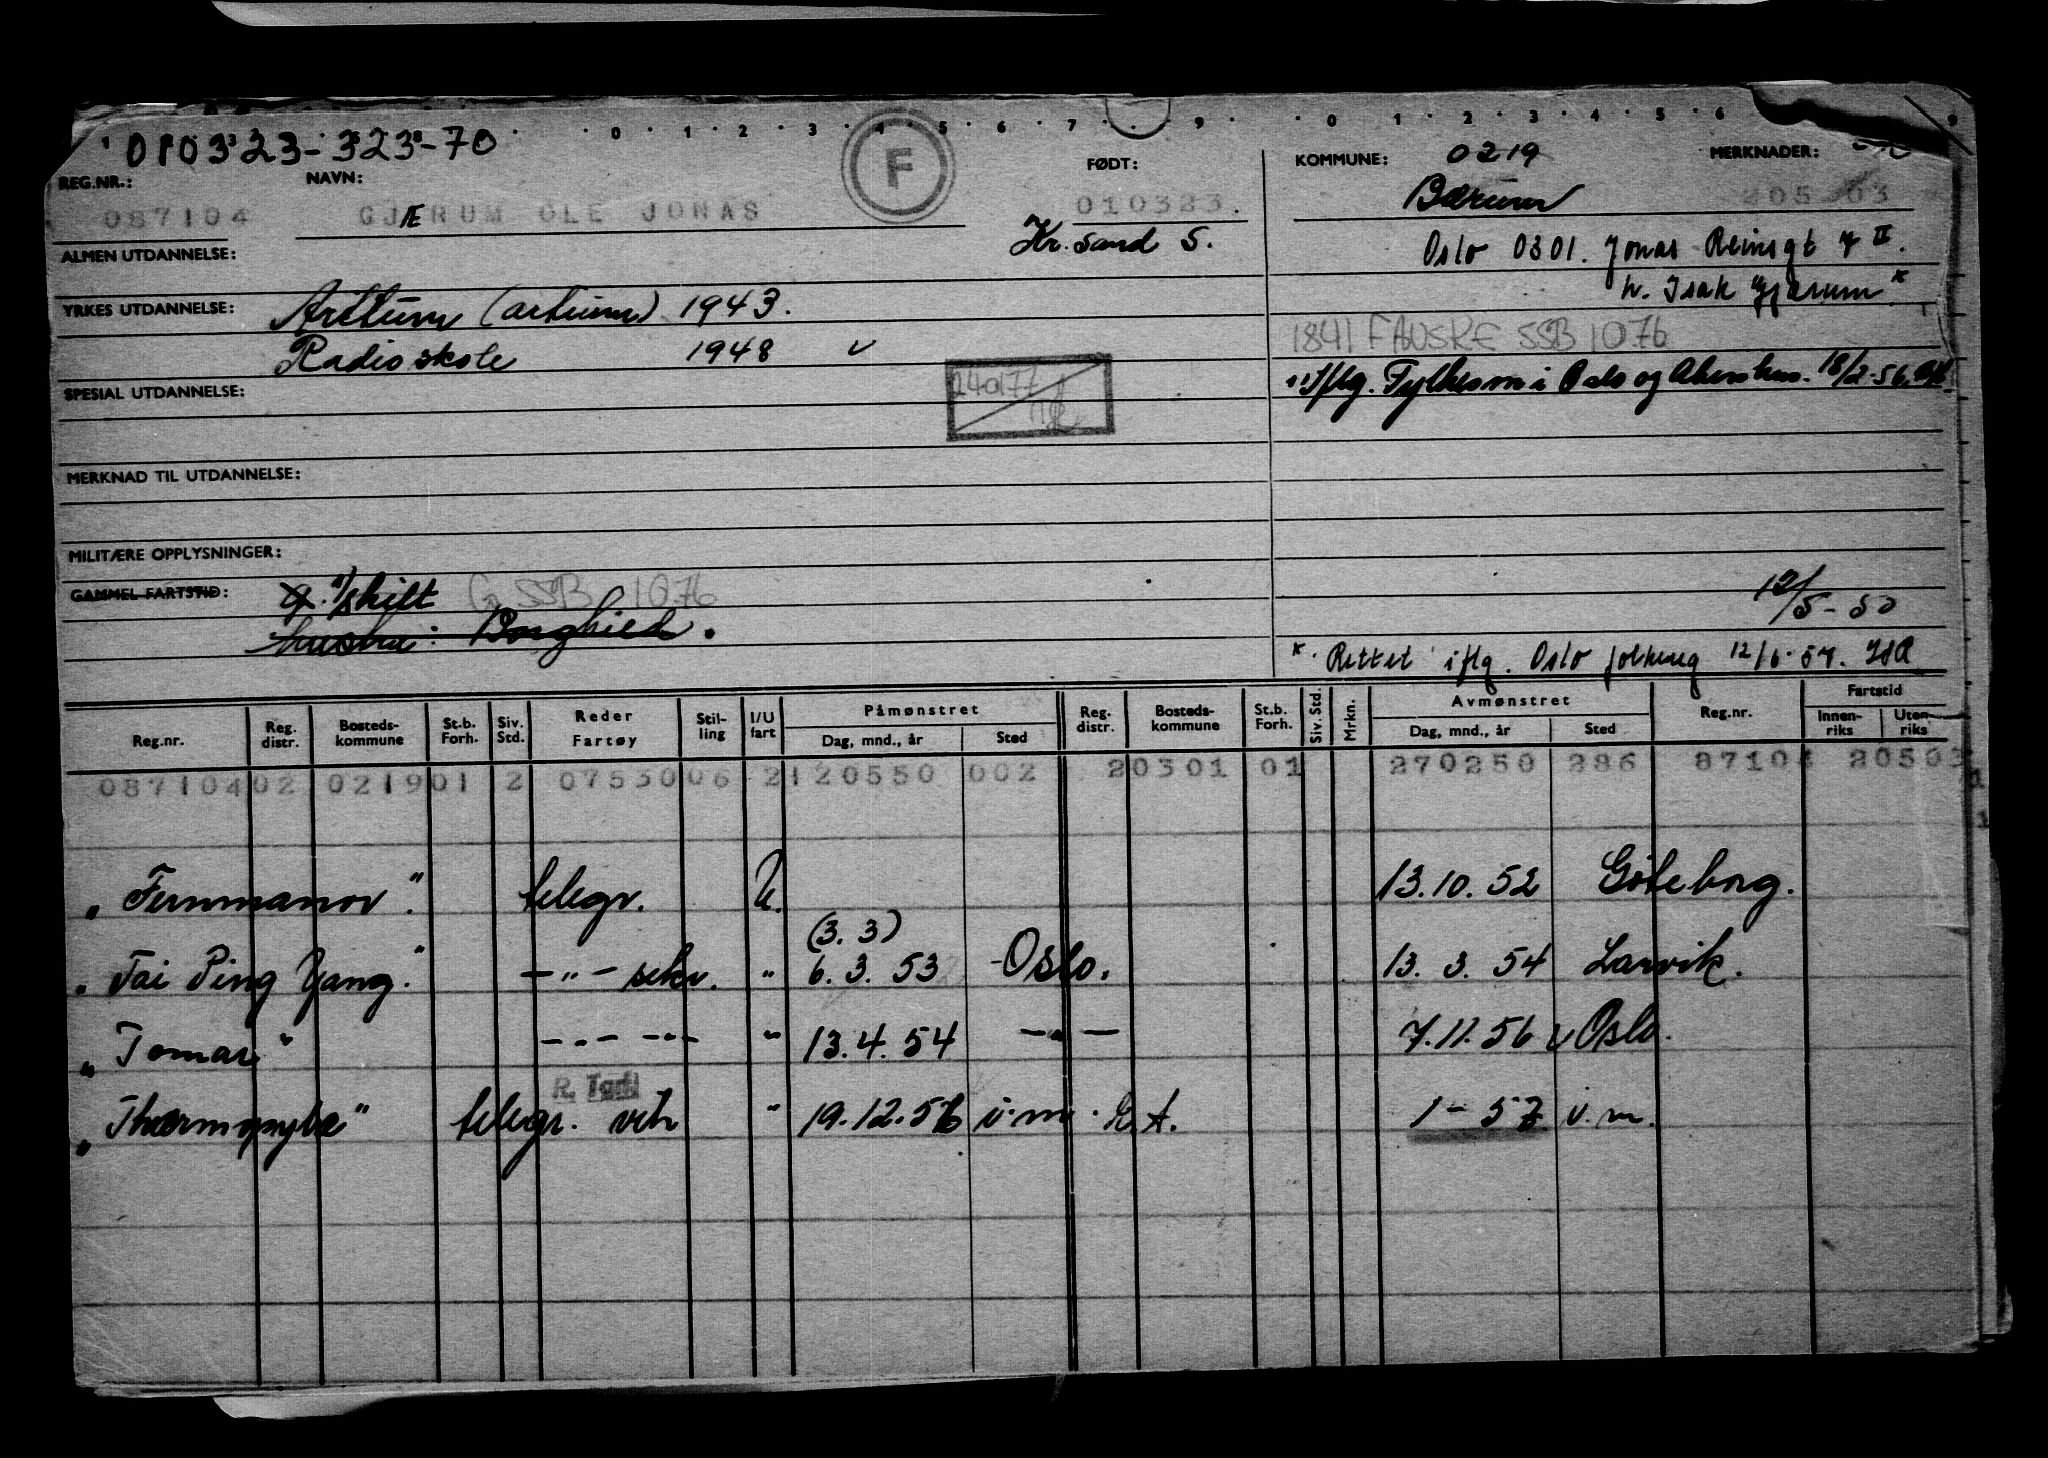 0 1 2 3 4 5 6 7 9 0 1 2 3 4 5 6 9
010323-323-70
F
REG.NR.: NAVN: FØDT: KOMMUNE: 0219 MERKNADER:
087104 GJÆRUM OLE JONAS 010323. Bærum 205 03
Kr. sand S.
ALMEN UTDANNELSE: Oslo 0301. Jonas Reinsgt 7 II.
h. Isak "Gjærum" x
YRKES UTDANNELSE: Arttum (artium) 1943.
1841 FAUSKE SSB 1076
Radioskole 1948 v
Iflg. Fylkesm i Oslo og Akershus. 18/2-56.
SPESIAL UTDANNELSE: 240177
MERKNAD TIL UTDANNELSE:
MILITÆRE OPPLYSNINGER:
GAMMEL FARTSTID: g. s/skilt G SSB 1076
12/5-50
hustru: Borghild.
x. Rettet iflg. Oslo folkereg 12/6-57.
Reg.nr. Reg. distr. Bosteds-kommune St.b. Forh. Siv. Std. Reder Fartøy Stil-ling I/U fart Påmønstret Dag, mnd., år Sted Reg. distr. Bosteds-kommune St.b. Forh. Siv. Std. Mrkn. Avmønstret Dag, mnd., år Sted Reg.nr. Fartstid Innen-riks Uten-riks
087104 02 0219 01 2 07530 06 2 120550 002 2 0301 01 270250 286 87104 20503
"Fernmanor" telegr. U. 13.10.52 Göteborg.
(3. 3)
"Tai Ping Yang" -"- sekr. " 6.3.53 Oslo. 13.3.54 Larvik.
"Tomar" -"- -"- " 13.4.54 -"- 7.11.56 v Oslo.
R. Tgrf.
"Thermopylæ" telegr. vik " 19.12.56 u.m. E.A. 1-57 u.m.